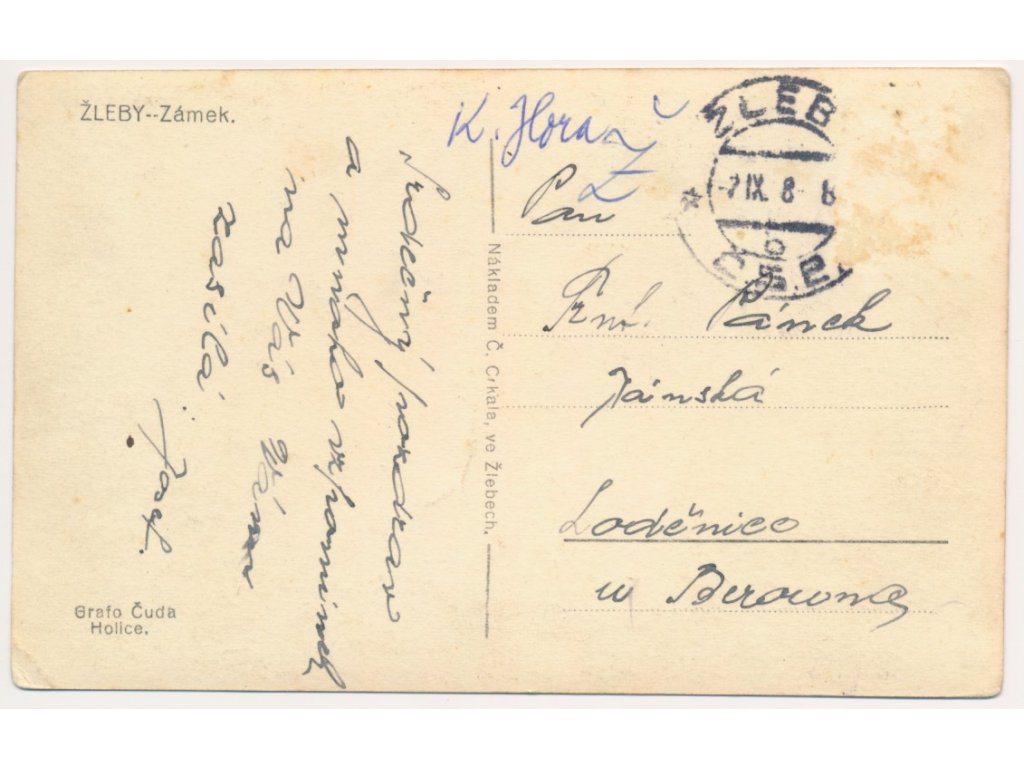 ŽLEBY--Zámek.
Srdečný pozdrav
a mnoho vzpomínek
na Vás Vám
zasílá
Josef.
Grafo Čuda
Holice.
Nákladem Č. Crkala, ve Žlebech.
K. Horaž
ŽLEB
-7.IX. 8- 8
ČS.P.
Pan
Frnt. Pánek
Jánská
Loděnice
u Berouna